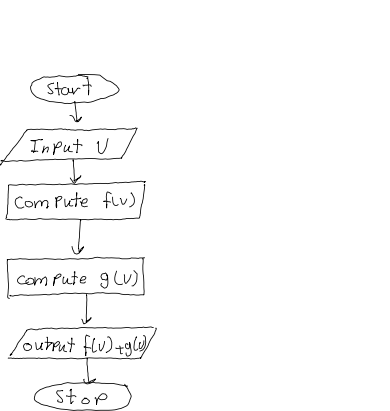 Start
Input U
Compute f(v)
compute g(v)
output f(v)+g(v)
Stop